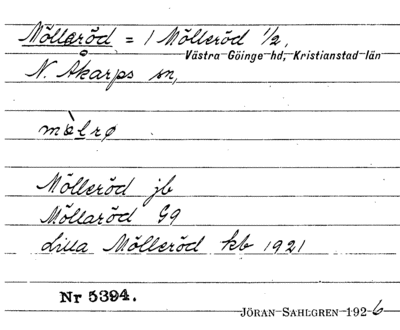 Mölleröd = 1 Mölleröd 1/2,
Västra Göinge hd, Kristianstad län
N. Åkarps sn,
mèlrø
Mölleröd jb
Möllaröd G9
Lilla Mölleröd kb 1921
Nr 5394.
JÖRAN SAHLGREN 1926